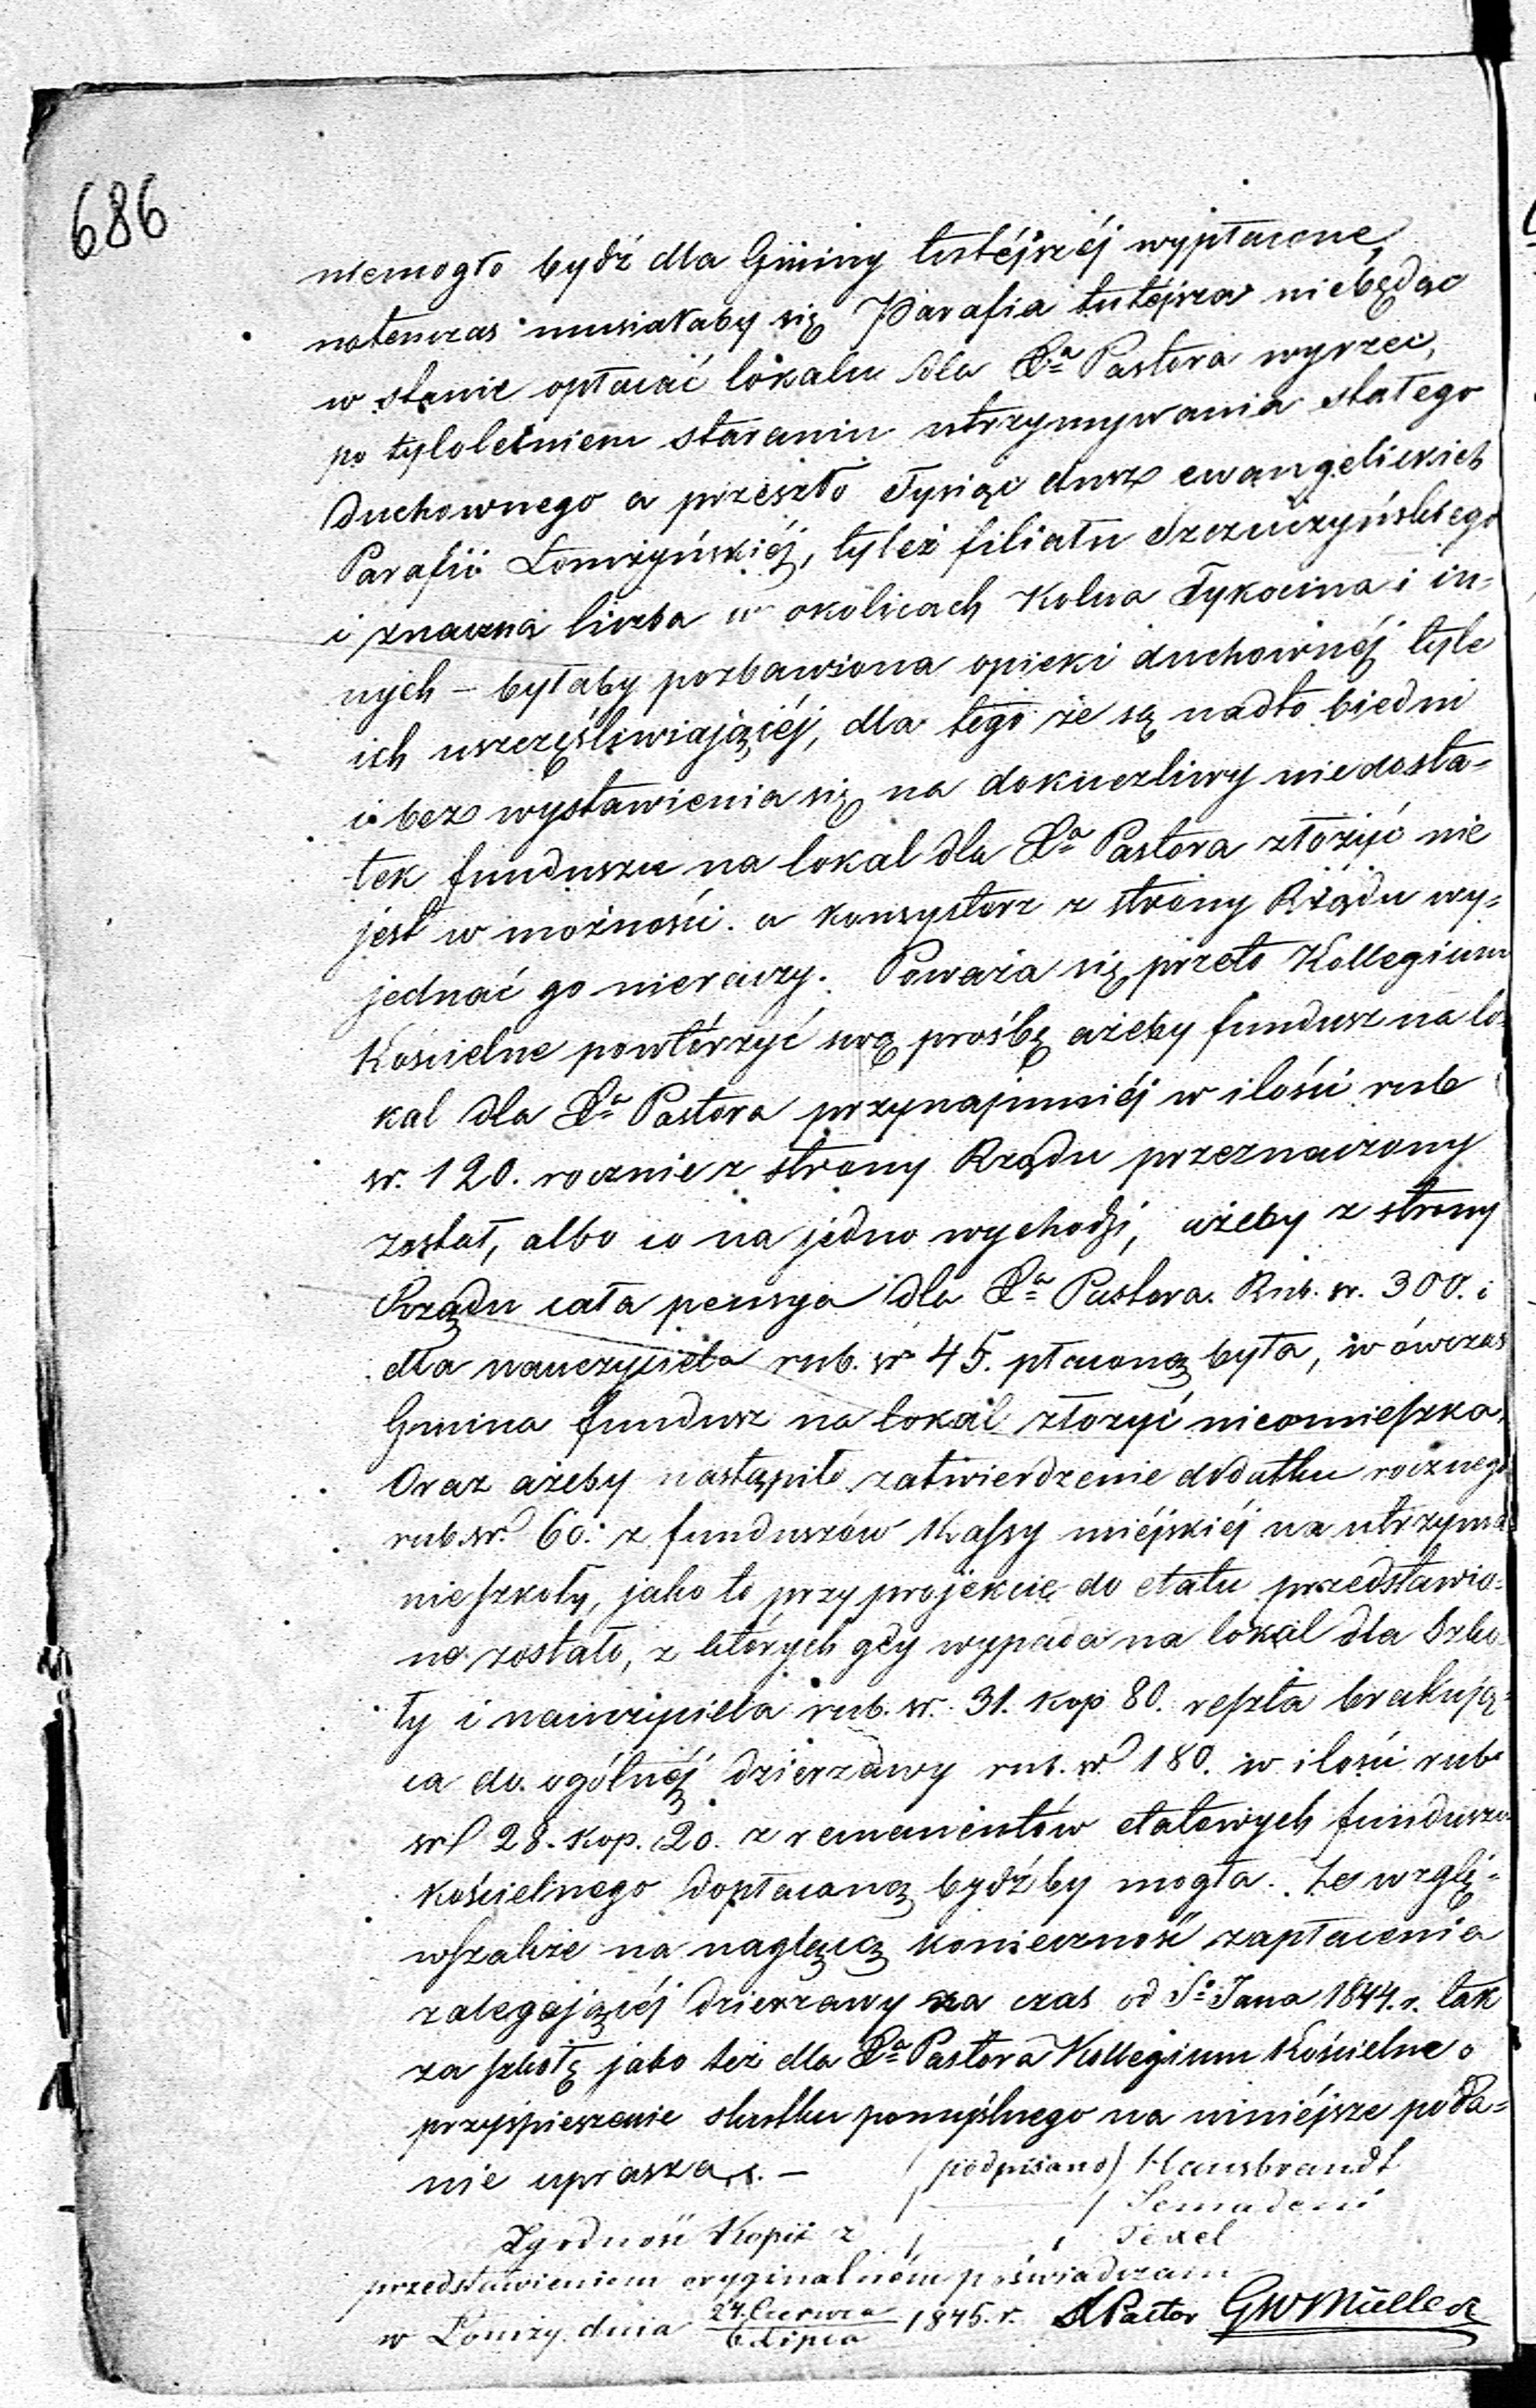 686
niemogło bydź dla Gminy tutéjszéj wypłacone,
natenczas musiałaby się Parafia tutejsza niebędąc
w stanie opłacać lokalu dla Xa Pastora wyrzec,
po tyloletniem staraniu utrzymywania stałego
Duchownego a przeszło Tysiąc dusz ewangelickich
Parafii Łomżyńskiéj, tyleż filiału Szczuczyńskiego
i znaczna liczba w okolicach Kolna Tykocina i in-
nych – byłaby pozbawiona opieki duchownéj tyle
ich uszczęśliwiającéj, dla tego że są nadto biedni
i bez wystawienia się na dokuczliwy niedosta-
tek funduszu na lokal dla Xa Pastora złożyć nie
jest w możności. a konsystorz z strony Rządu wy-
jednać go nieraczy. Poważa się przeto Kollegium
Kościelne powtórzyć swą prośbę ażeby fundusz na lo-
kal dla Xa Pastora przynajmniéj w ilości rub
sr. 120. rocznie z strony Rządu przeznaczony
został, albo co na jedno wychodzi, ażeby z strony
Rządu cała pensya dla Xa Pastora. Rub. sr. 300. i
dla nauczyciela rub. sr. 45. płaconą była, wówczas
Gmina fundusz na lokal złożyć nieomieszka.
Oraz ażeby nastąpiło zatwierdzenie dodatku rocznego
rub. sr. 60. z funduszów Kassy miéjskiéj na utrzyma
nie szkoły, jako to przy projekcie do etatu przedstawio-
ne zostało, z których gdy wypada na lokal dla Szko-
ły i nauczyciela rub. sr. 31. kop 80. reszta brakują-
ca do ogólnéj dzierzawy rub. sr. 180. w ilości rub
sr. 28. kop. 20. z remanentów etatowych funduszu
kościelnego dopłaconą bydźby mogła. Ze wzglę-
wszakże na naglącą konieczność zapłacenia
zalegającéj dzierzawy za czas od So Jana 1844. r. tak
za szkołę jako też dla Xa Pastora Kollegium Kościelne o
przyśpieszenie skutku pomyślnego na niniéjsze poda-
nie uprasza. –
(podpisano) Hausbrandt
Semadeni
Texel
Zgodność Kopii z
przedstawieniem oryginalném poświadczam
w Łomży dnia 24. Czerwca / 6 Lipca 1845. r. X Pastor GWMüller